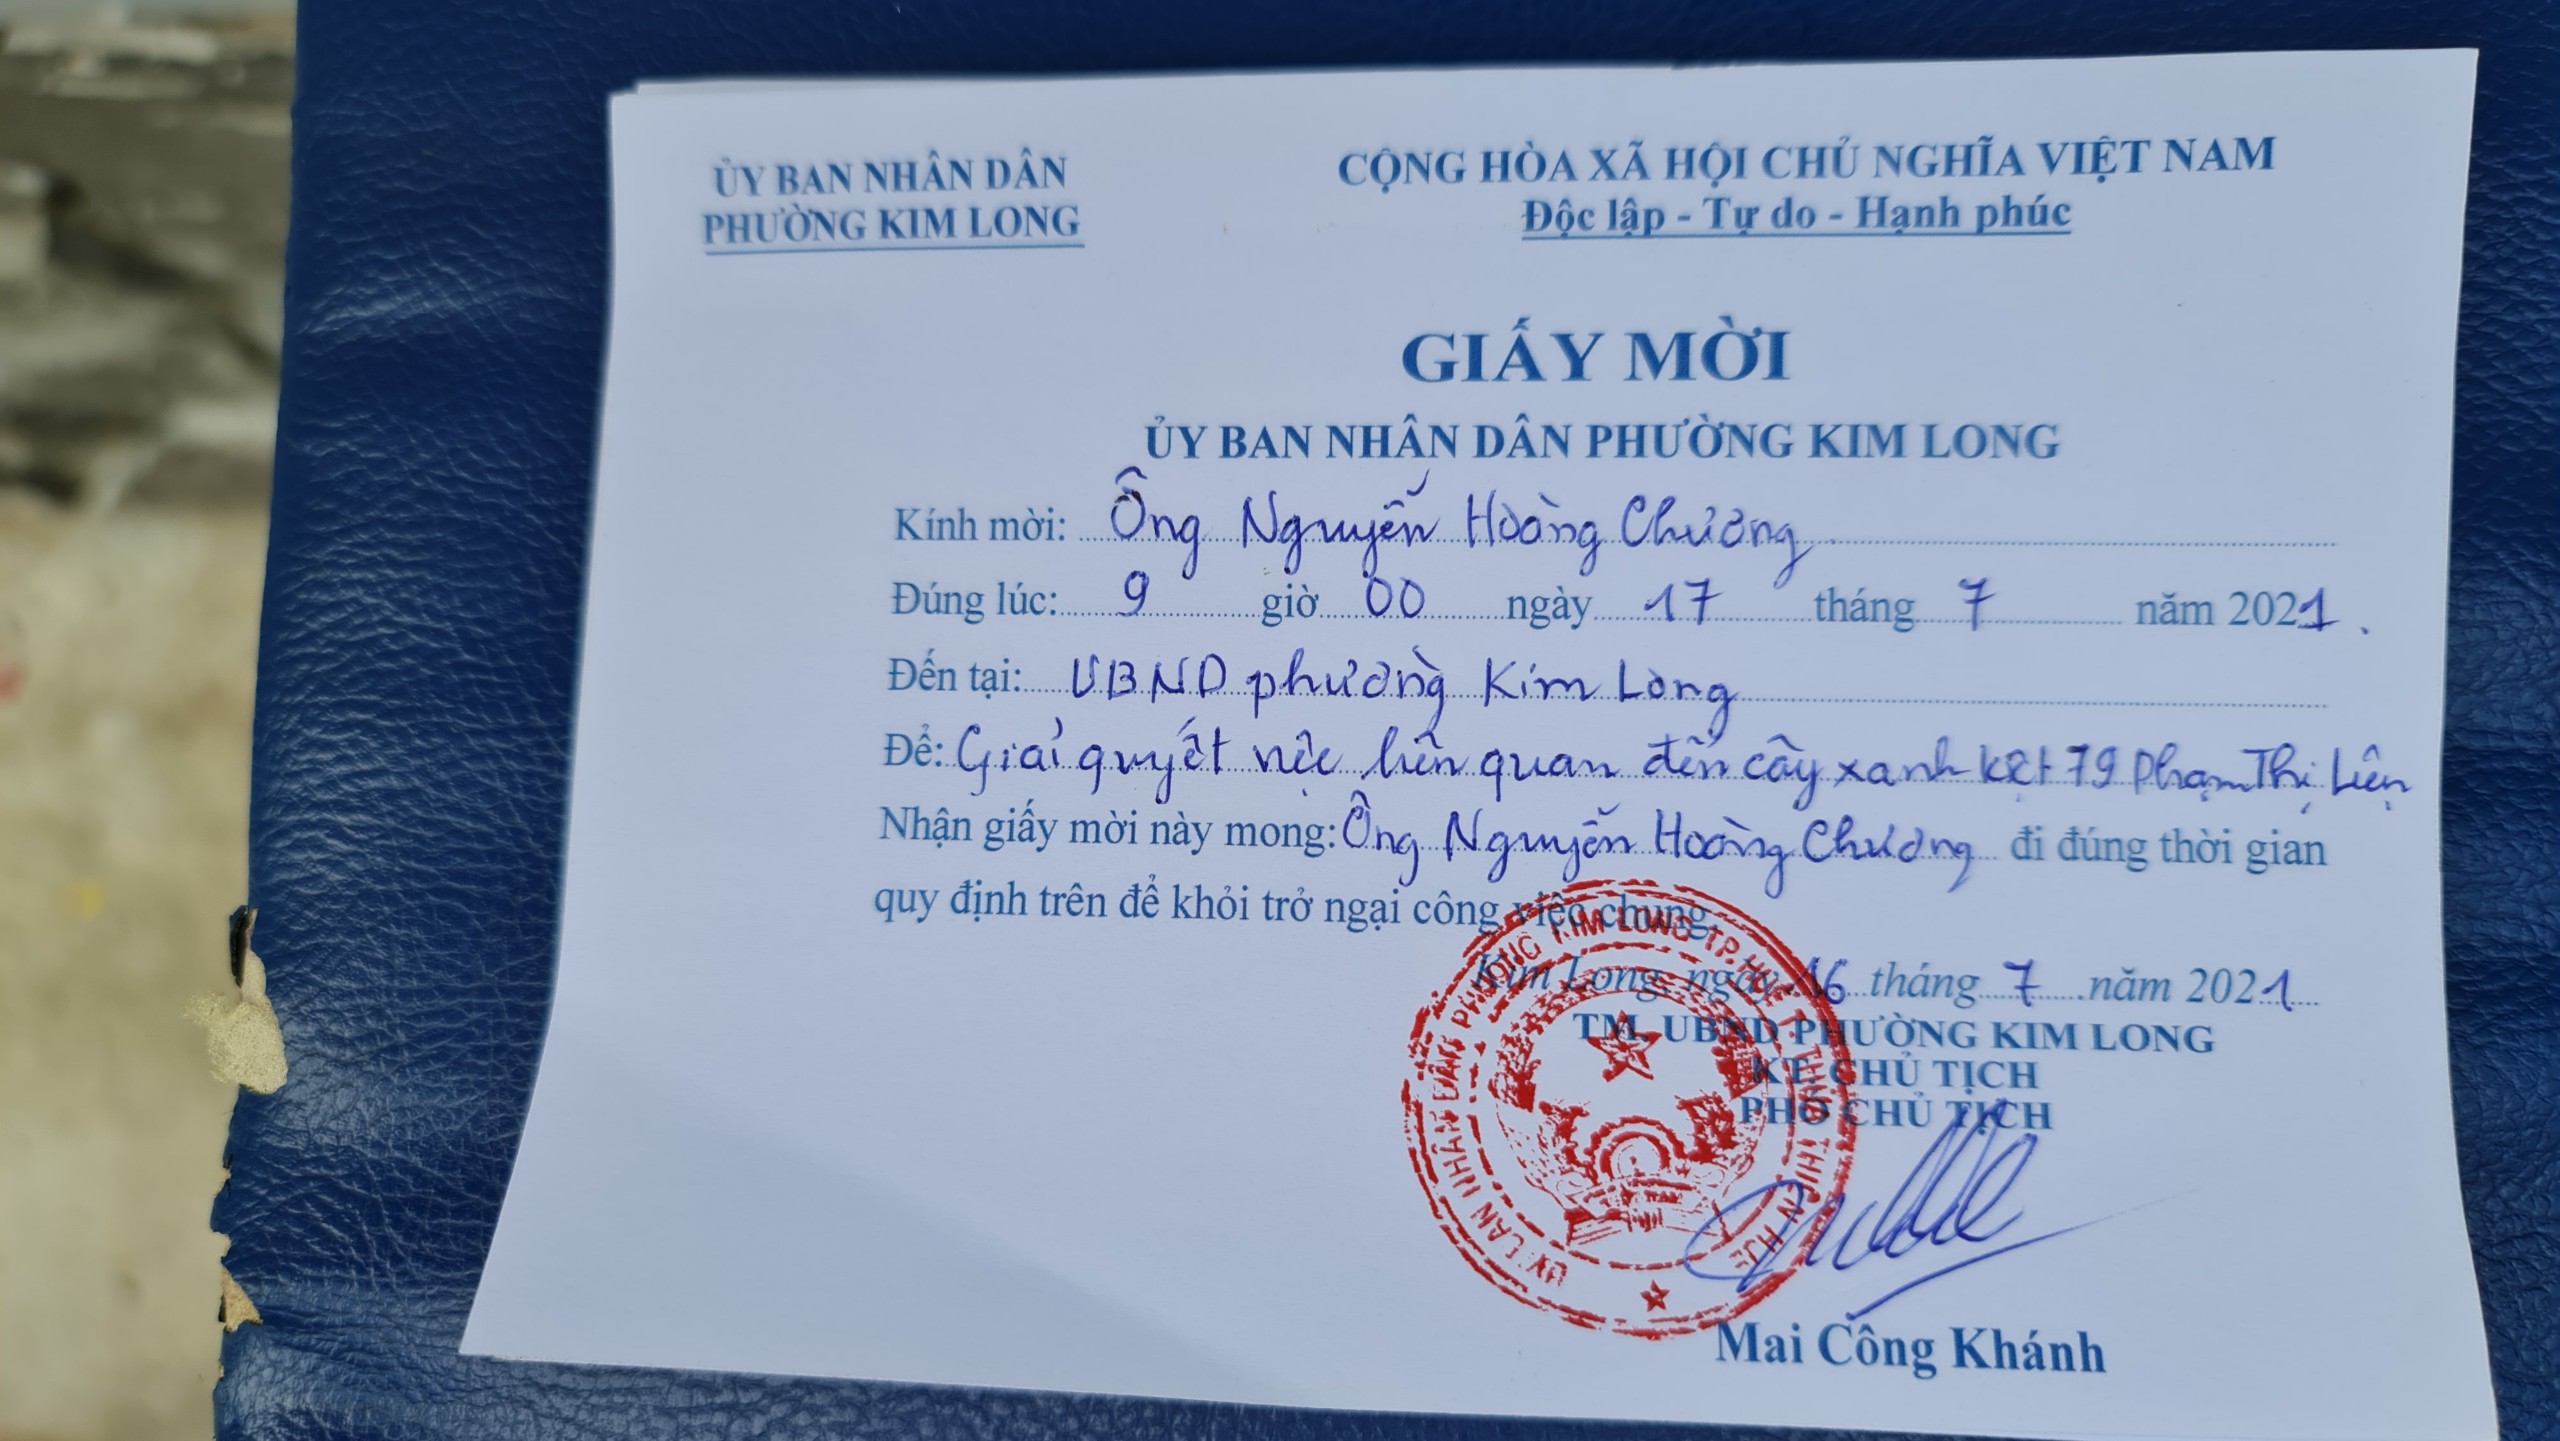 ỦY BAN NHÂN DÂN
PHƯỜNG KIM LONG
CỘNG HÒA XÃ HỘI CHỦ NGHĨA VIỆT NAM
Độc lập - Tự do - Hạnh phúc
GIẤY MỜI
ỦY BAN NHÂN DÂN PHƯỜNG KIM LONG
Kính mời: Ông Nguyễn Hoàng Chương
Đúng lúc: 9 giờ 00 ngày 17 tháng 7 năm 2021.
Đến tại: UBND phường Kim Long
Để: Giải quyết việc liên quan đến cây xanh kiệt 79 Phạm Thị Liên
Nhận giấy mời này mong: Ông Nguyễn Hoàng Chương đi đúng thời gian
quy định trên để khỏi trở ngại công việc chung.
Kim Long, ngày 16 tháng 7 năm 2021
TM. UBND PHƯỜNG KIM LONG
KT. CHỦ TỊCH
PHÓ CHỦ TỊCH
ỦY BAN NHÂN DÂN PHƯỜNG KIM LONG TP. HUẾ T. THỪA THIÊN HUẾ
Mai Công Khánh